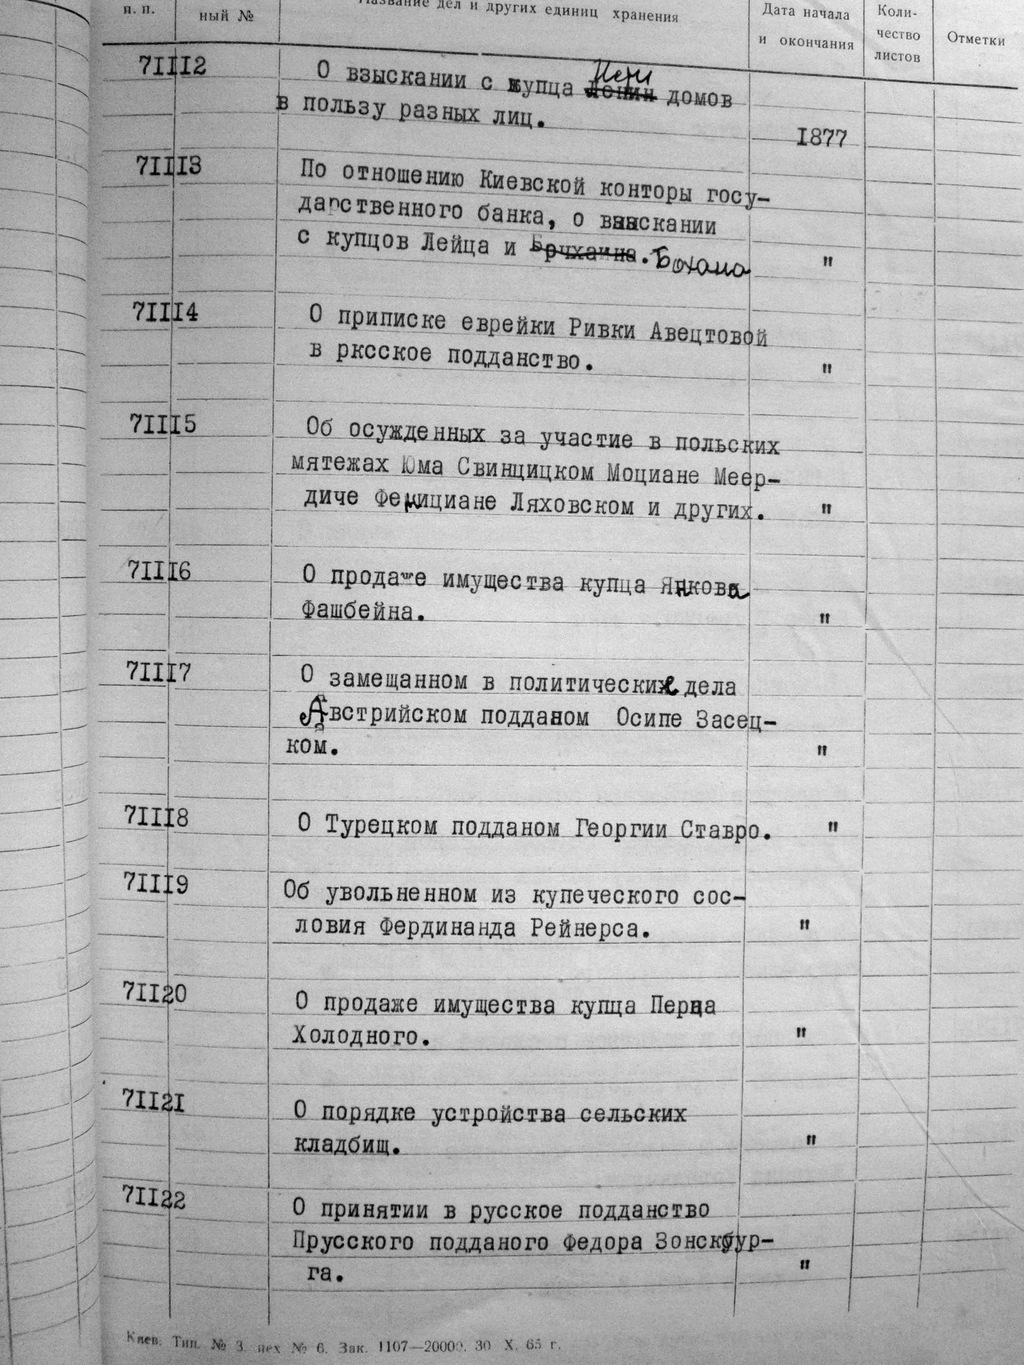 п. п.
ный №
Название дел и других единиц хранения
Дата начала
и окончания
Коли-
чество
листов
Отметки
71112
О взыскании с купца домов
в пользу разных лиц.
1877
71113
По отношению Киевской конторы госу-
дарственного банка, о взыскании
с купцов Лейца и
"
71114
О приписке еврейки Ривки Авецтовой
в ркссκое подданство.
"
71115
Об осужденных за участие в польских
мятежах Юма Свинцицком Моциане Меер-
диче Фелициане Ляховском и других.
"
71116
О продаже имущества купца Янкова
Фашбейна.
"
71117
О замещанном в политические дела
Австрийском подданом Осипе Засец-
ком.
"
71118
О Турецком подданом Георгии Ставро.
"
71119
Об увольненном из купеческого сос-
ловия Фердинанда Рейнерса.
"
71120
О продаже имущества купца Перца
Холодного.
"
71121
О порядке устройства сельских
кладбищ.
"
71122
О принятии в русское подданство
Прусского подданого Федора Зонсбур-
га.
"
Киев. Тип. № 3. цех № 6. Зак. 1107—20000. 30 X. 65 г.